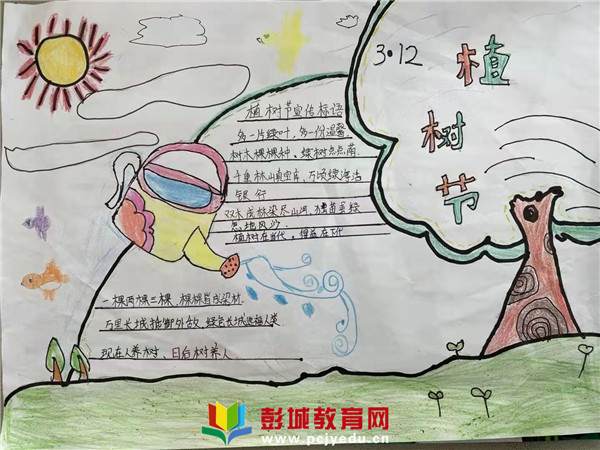 3·12
植
树
节
植树节宣传标语
多一片绿叶，多一份温馨
树木棵棵种、绿树点点荫
千重林山填宝库、万顷绿海洁
银行
双木成林染尽山河
忌地风沙
植树在当代、得益在下代
一棵两棵三棵、棵棵皆成染材
万里长城抵御外敌 绿色长城造福人类
现在人养树、日后树养人
彭城教育网
www.pcjyedu.cn